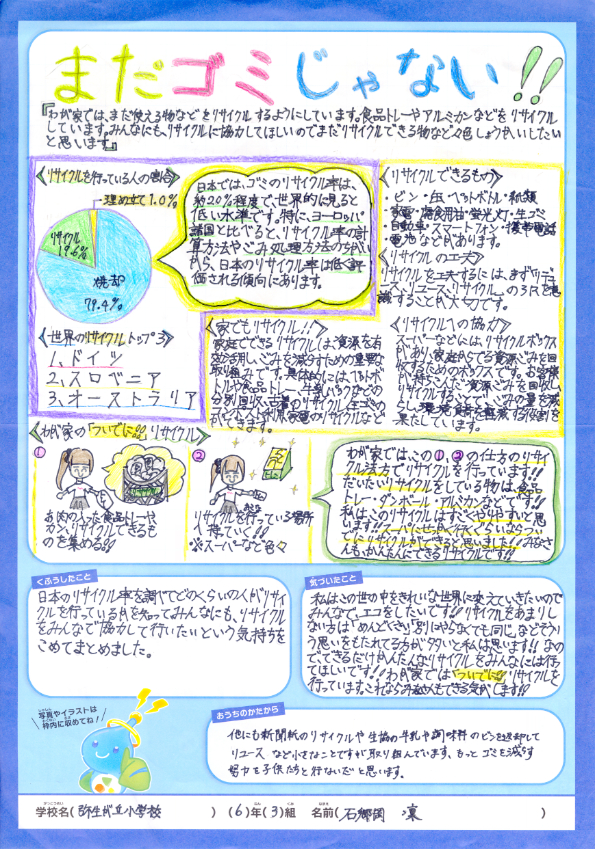 まだゴミじゃない!!
『わが家では、まだ使える物などをリサイクルするようにしています。食品トレーやアルミカンなどをリサイクル
しています。みんなにも、リサイクルに協力してほしいのでまだリサイクルできる物など々色しょうかいしたい
と思います』
≪リサイクルを行っている人の割合≫
埋め立て1.0%
リサイクル
19.6%
焼却
79.4%
日本では、ゴミのリサイクル率は、
約20%程度で、世界的に見ると
低い水準です。特に、ヨーロッパ
諸国と比べると、リサイクル率の計
算方法やごみ処理方法のちがい
から、日本のリサイクル率は低く評
価される傾向にあります。
≪リサイクルできるもの≫
・ビン・缶・ペットボトル・紙類
・家電・廃食用油・蛍光灯・生ゴミ
・自動車・スマートフォン・携帯電話
・電池などがあります。
≪リサイクルの工夫≫
リサイクルを工夫するには、まず「リデュ
ース、リユース、リサイクル」の3Rを意
識することが大切です。
≪世界のリサイクルトップ3≫
1、ドイツ
2、スロベニア
3、オーストラリア
≪家でもリサイクル!!≫
家庭でできるリサイクルは、資源を有
効活用し、ごみを減らすための重要な
取り組みです。具体的には、ペットボ
トルや食品トレー、牛乳パックなどの
分別回収、古着のリサイクル、生ゴミの
コンポスト利用、家電のリサイクルなど
ができます。
≪リサイクルへの協力≫
スーパーなどには、リサイクルボックス
があり、家庭からでる資源ごみを回
収するためのボックスです。お客様
が持ちこんだ資源ごみを回収し、
リサイクルすることで、ごみの量を減
らし、環境負荷を軽減する役割を
果たしています。
≪わが家の「ついでに!!」リサイクル≫
①
お肉の入った食品トレーや
カン、リサイクルできるも
のを集める!!
②
リサイクルを行っている場所
へ持ていく!!
※スーパーなど色々
わが家では、この①、②の仕方のリサイ
クル法方でリサイクルを行っています!!
だいたいリサイクルをしている物は、食品
トレー・ダンボール・アルミカンなどです!!
私は、このリサイクルはすごくやりやすいと思
います!!スーパーにちょっと行くくらいならつい
でにリサイクルができると思いました!!みなさ
んも、かんたんにできるリサイクルです!!
くふうしたこと
日本のリサイクル率を調べてどのくらいの人がリサイ
クルを行っている月を知ってみんなにも、リサイクル
をみんなで協力して行いたいという気持ちを
こめてまとめました。
気づいたこと
私はこの世の中をきれいな世界に変えていきたいので
みんなで、エコをしたいです!!リサイクルをあまりし
ない方は「めんどくさい」「別にやらなくても同じ」などそうい
う思いをもたれてる方が多いと私は思います!!なの
で、できるだけかんたんなリサイクルをみんなには行っ
てほしいです!!わが家では「ついでに!!」リサイクルを
行っています。これならみなさんもできる気がします!!
写真やイラストは
枠内に収めてね!
おうちのかたから
他にも新聞紙のリサイクルや生協の牛乳や調味料のビンを返却して
リユースなど小さなことですが取り組んでいます。もっとゴミを減らす
努力を子供たちと行ないたいと思います。
学校名(弥生が丘小学校) (6)年(3)組 名前(石郷岡 凜)